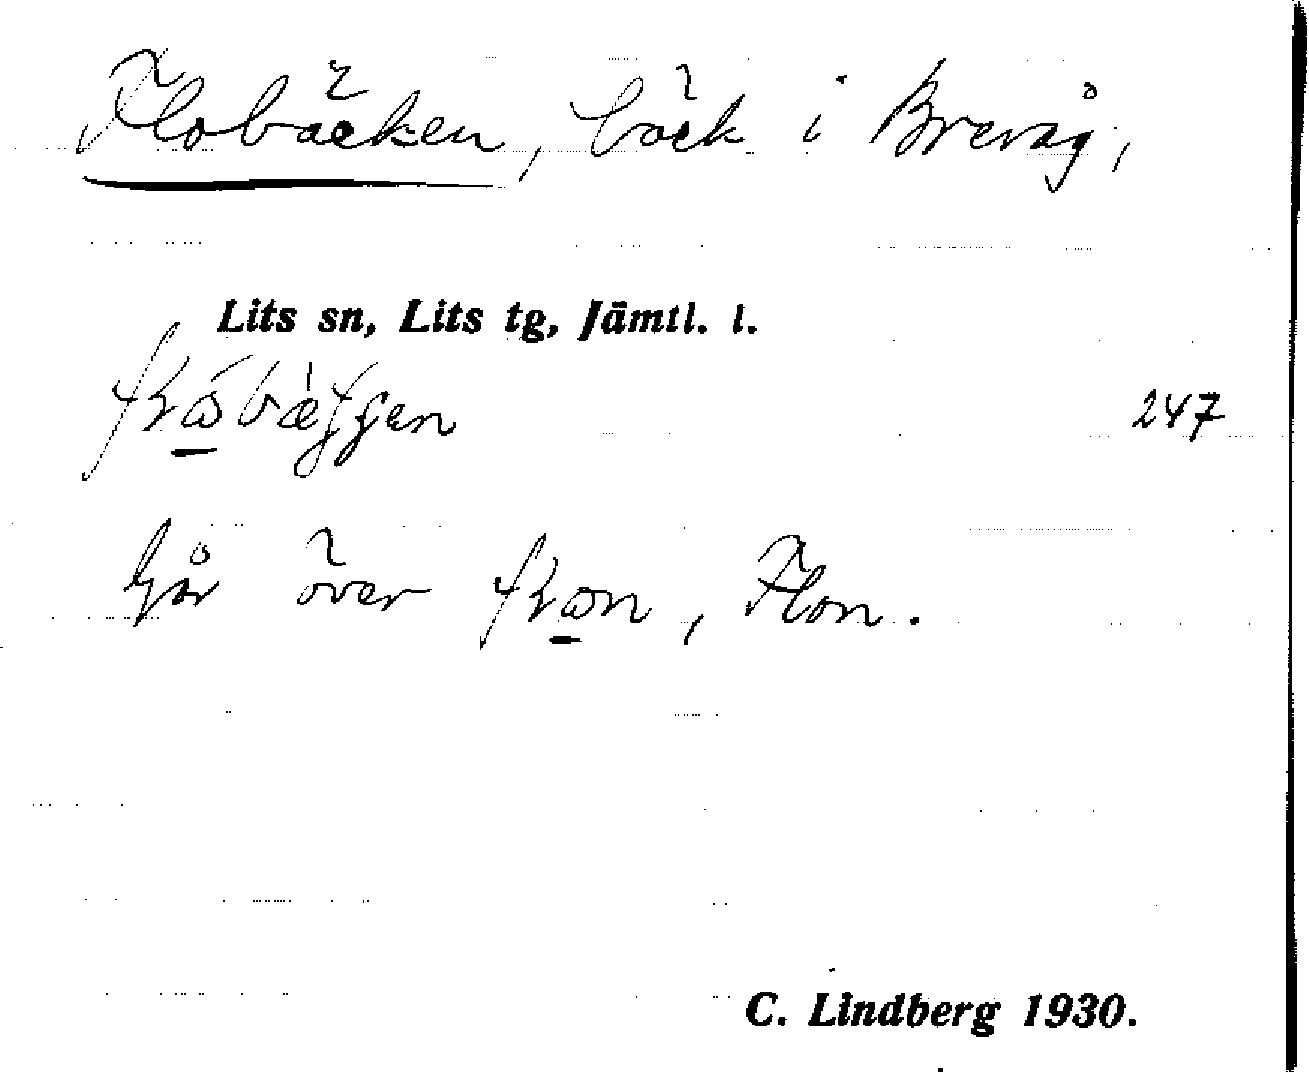 Flobäcken, bäck i Brevåg,
Lits sn, Lits tg, Jämtl. l.
247
Går över , Flon.
C. Lindberg 1930.